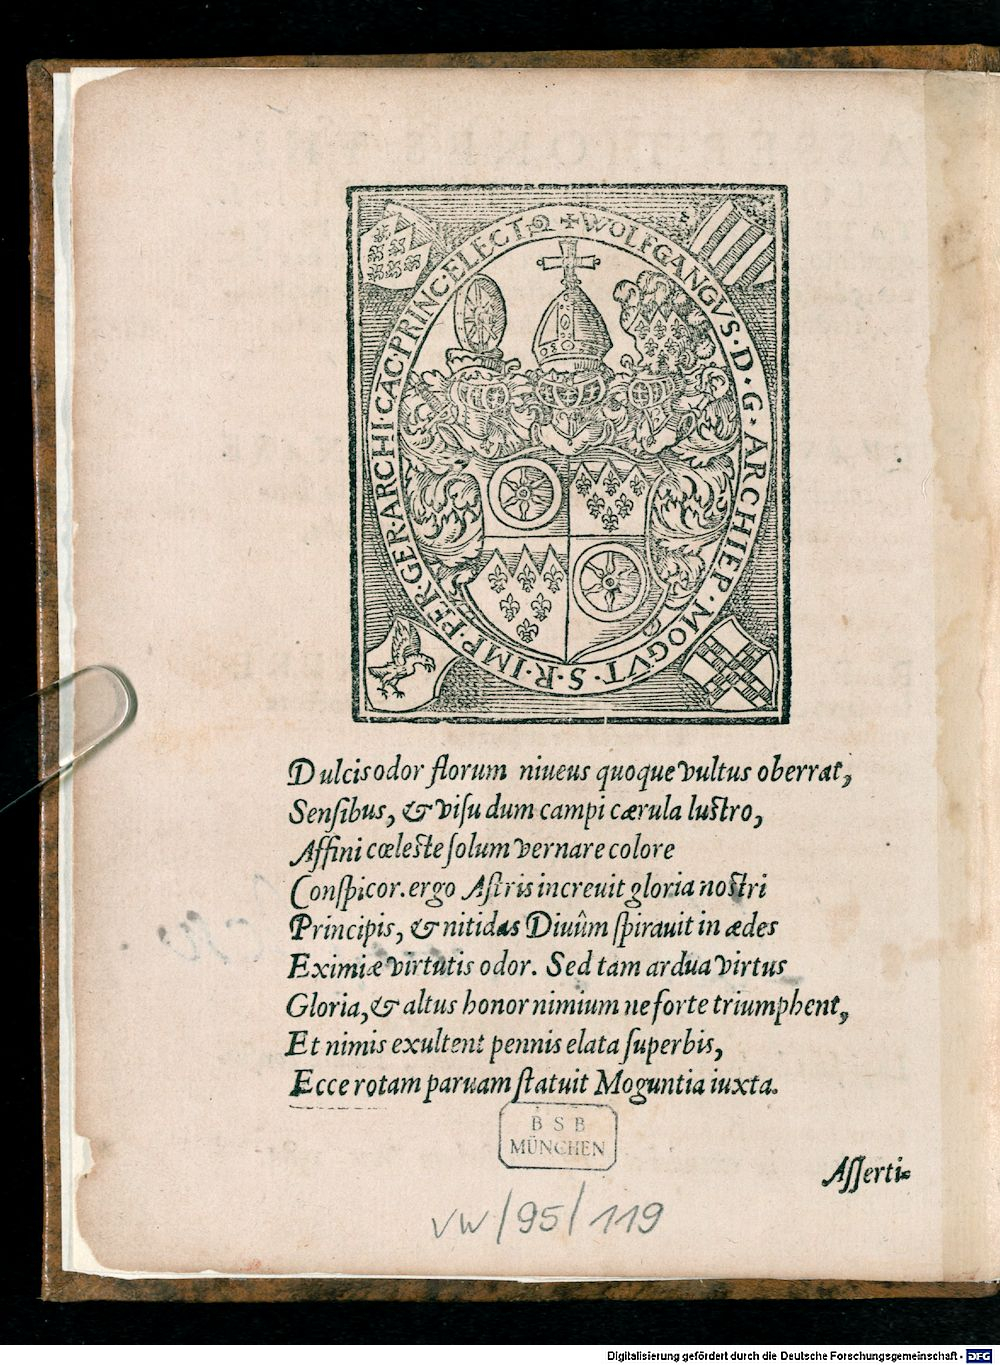 ✠ WOLFGANGVS · D · G · ARCHIEP · MOGVT · S · R · IMP · PER · GER · ARCHI · CAC · PRINC · ELECT
Dulcis odor florum niueus quoque vultus oberrat,
Senſibus, & viſu dum campi cærula luſtro,
Affini cœleſte ſolum vernare colore
Conſpicor. ergo Aſtris increuit gloria noſtri
Principis, & nitidas Diuûm ſpirauit in ædes
Eximiæ virtutis odor. Sed tam ardua virtus
Gloria, & altus honor nimium ne forte triumphent,
Et nimis exultent pennis elata ſuperbis,
Ecce rotam paruam ſtatuit Moguntia iuxta.
B S B
MÜNCHEN
Aſſerti-
VW/95/119
Digitalisierung gefördert durch die Deutsche Forschungsgemeinschaft - DFG